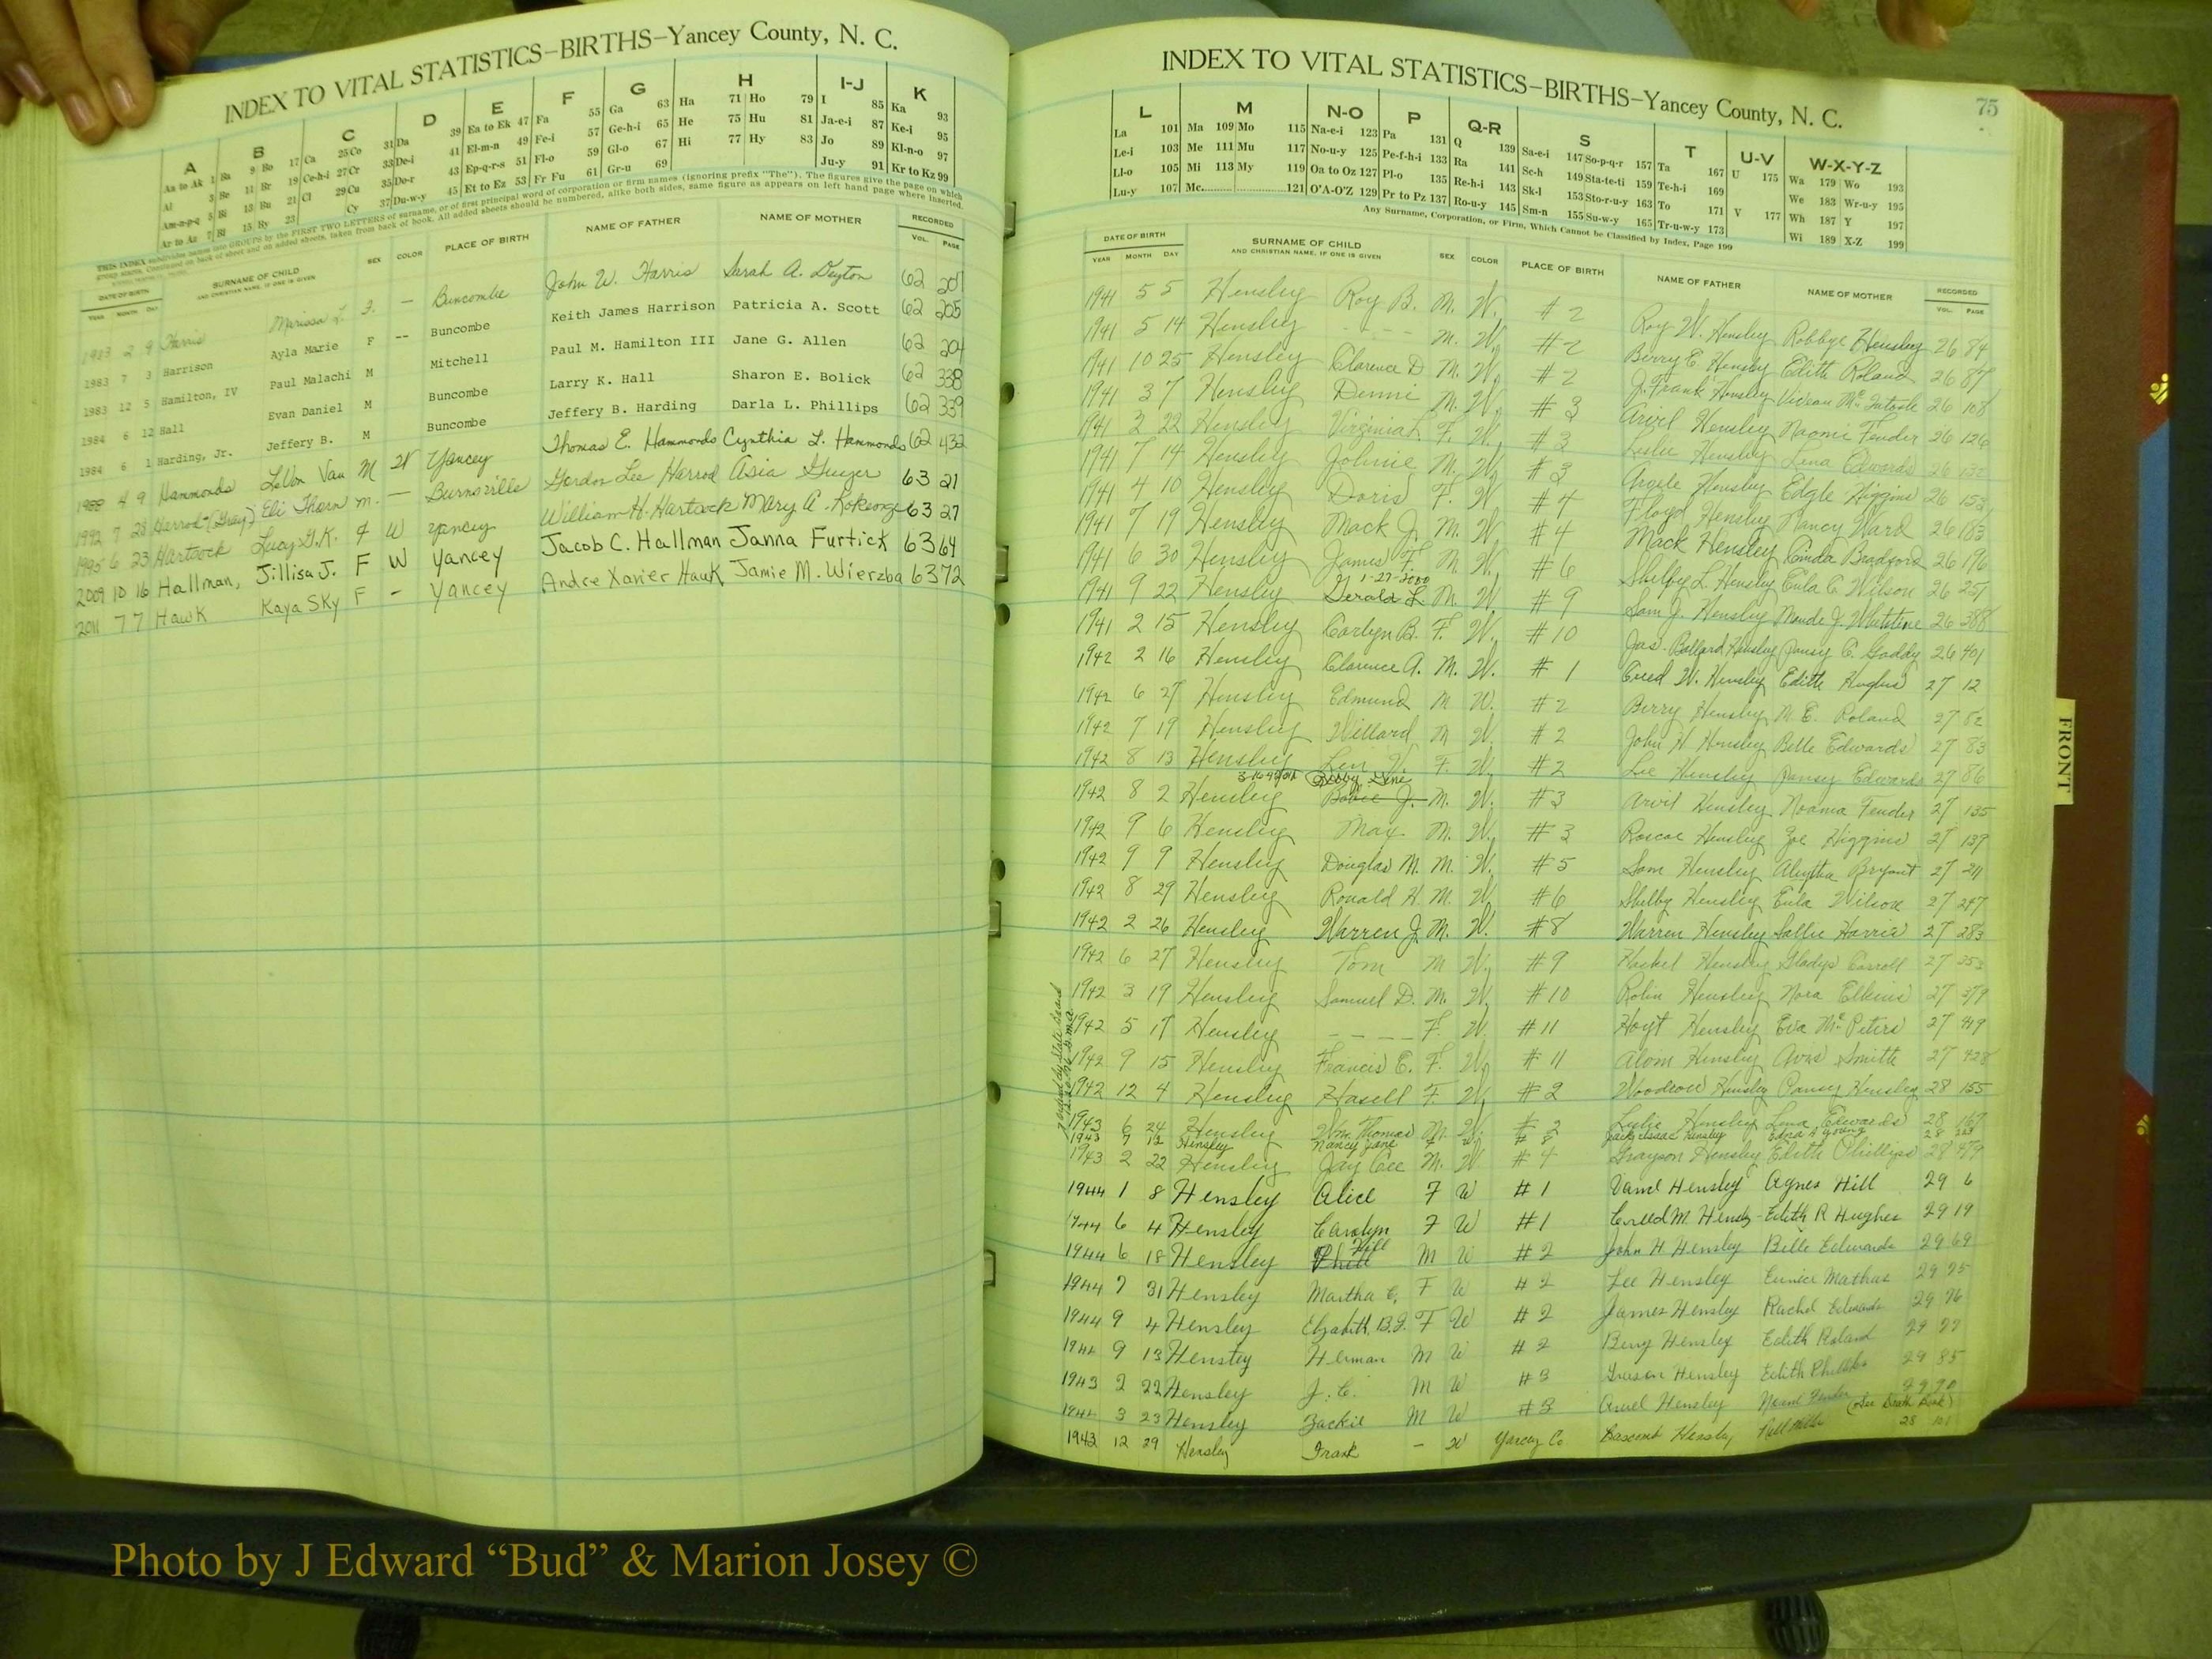 INDEX TO VITAL STATISTICS–BIRTHS–Yancey County, N. C.
A B C D E F G H I-J K
Aa to Ak 1 Ba 9 Bo 17 Ca 25 Co 31 Da 39 Ea to Ek 47 Fa 55 Ga 63 Ha 71 Ho 79 I 85 Ka 93
Al 3 Be 11 Br 19 Ce-h-i 27 Cr 33 De-i 41 El-m-n 49 Fe-i 57 Ge-h-i 65 He 75 Hu 81 Ja-e-i 87 Ke-i 95
Am-n-p-q 5 Bi 13 Bu 21 Cl 29 Cu 35 Do-r 43 Ep-q-r-s 51 Fl-o 59 Gl-o 67 Hi 77 Hy 83 Jo 89 Kl-n-o 97
Ar to Az 7 Bl 15 By 23 Cy 37 Du-w-y 45 Et to Ez 53 Fr Fu 61 Gr-u 69 Ju-y 91 Kr to Kz 99
THIS INDEX subdivides names into GROUPS by the FIRST TWO LETTERS of surname, or of first principal word of corporation or firm names (ignoring prefix "The"). The figures give the page on which
group starts. Continued on back of sheet and on added sheets, taken from back of book. All added sheets should be numbered, alike both sides, same figure as appears on left hand page where inserted.
DATE OF BIRTH SURNAME OF CHILD SEX COLOR PLACE OF BIRTH NAME OF FATHER NAME OF MOTHER RECORDED
YEAR MONTH DAY AND CHRISTIAN NAME, IF ONE IS GIVEN VOL. PAGE
1983 2 9 Harris Marissa L. F. — Buncombe John W. Harris Sarah A. Deyton 62 201
1983 7 3 Harrison Ayla Marie F -- Buncombe Keith James Harrison Patricia A. Scott 62 205
1983 12 5 Hamilton, IV Paul Malachi M Mitchell Paul M. Hamilton III Jane G. Allen 62 204
1984 6 12 Hall Evan Daniel M Buncombe Larry K. Hall Sharon E. Bolick 62 338
1984 6 1 Harding, Jr. Jeffery B. M Buncombe Jeffery B. Harding Darla L. Phillips 62 339
4 9 Hammonds LeVon Van M W Yancey Thomas E. Hammonds Cynthia L. Hammonds 62 432
1992 7 28 Harrod (Gray) Eli Thorn M. — Burnsville Gordon Lee Harrod Asia 63 21
1995 6 23 Hartsock Lucy G.K. F W Yancey William H. Hartsock Mary A. 63 27
2009 10 16 Hallman, Jillisa J. F W Yancey Jacob C. Hallman Janna Furtick 63 64
2011 7 7 Hawk Kaya Sky F - Yancey Andre Xavier Hawk Jamie M. Wierzba 63 72
INDEX TO VITAL STATISTICS–BIRTHS–Yancey County, N. C.
75
L M N-O P Q-R S T U-V W-X-Y-Z
La 101 Ma 109 Mo 115 Na-e-i 123 Pa 131 Q 139 Sa-e-i 147 So-p-q-r 157 Ta 167 U 175 Wa 179 Wo 193
Le-i 103 Me 111 Mu 117 No-u-y 125 Pe-f-h-i 133 Ra 141 Sc-h 149 Sta-te-ti 159 Te-h-i 169 We 183 Wr-u-y 195
Ll-o 105 Mi 113 My 119 Oa to Oz 127 Pl-o 135 Re-h-i 143 Sk-l 153 Sto-r-u-y 163 To 171 V 177 Wh 187 Y 197
Lu-y 107 Mc 121 O'A-O'Z 129 Pr to Pz 137 Ro-u-y 145 Sm-n 155 Su-w-y 165 Tr-u-w-y 173 Wi 189 X-Z 199
Any Surname, Corporation, or Firm, Which Cannot be Classified by Index, Page 199
DATE OF BIRTH SURNAME OF CHILD SEX COLOR PLACE OF BIRTH NAME OF FATHER NAME OF MOTHER RECORDED
YEAR MONTH DAY AND CHRISTIAN NAME, IF ONE IS GIVEN VOL. PAGE
1941 5 5 Hensley Roy B. M. W. #2 Roy W. Hensley Robbye Hensley 26 84
1941 5 14 Hensley - - - M. W. #2 Berry E. Hensley Edith Roland 26 87
1941 10 25 Hensley Clarence D M. W. #2 J. Frank Hensley Vivian McIntosh 26 108
1941 3 7 Hensley Denni M. W. #3 Arvil Hensley Naomi Fender 26 126
1941 2 22 Hensley Virginia F. W. #3 Leslie Hensley Lena Edwards 26
1941 7 14 Hensley Johnie M. W. #3 Hensley Edgle Higgins 26 153
1941 4 10 Hensley Doris F. W #4 Floyd Hensley Nancy Ward 26 183
1941 7 19 Hensley Mack J. M. W. #4 Mack Hensley Bradford 26 196
1941 6 30 Hensley James F. M W. #6 Hensley Eula C. Wilson 26 251
1-27-2000
1941 9 22 Hensley Gerald L M. W. #9 Sam J. Hensley Maude J. 26 388
1941 2 15 Hensley Carlyn B. F. W. #10 Jas. Ballard Hensley Pansy C. Gaddy 26 401
1942 2 16 Hensley Clarence A. M. W. #1 Creed W. Hensley Edith Hughes 27 12
1942 6 27 Hensley Edmund M W. #2 Berry Hensley M. E. Roland 27 82
1942 7 19 Hensley Willard M W. #2 John H Hensley Belle Edwards 27 83
1942 8 13 Hensley F. W. #2 Lee Hensley Pansy Edwards 27 86
Bobby Gene
1942 8 2 Hensley Bobie J. M. W. #3 Arvil Hensley Noama Fender 27 135
1942 9 6 Hensley Max M. W. #3 Roscoe Hensley Zoe Higgins 27 139
1942 9 9 Hensley Douglas M. M. W. #5 Sam Hensley Bryant 27 211
1942 8 29 Hensley Ronald H. M. W. #6 Shelby Hensley Eula Wilson 27 247
1942 2 26 Hensley Warren J. M. W. #8 Warren Hensley Sallie Harris 27 283
1942 6 27 Hensley Tom M W. #9 Hensley Gladys Carroll 27 353
1942 3 19 Hensley Samuel D. M. W. #10 Robin Hensley Nora Elkins 27 379
1942 5 17 Hensley - - - F. W. #11 Hoyt Hensley Eva McPeters 27 419
1942 9 15 Hensley Francis E. F. W. #11 Hensley Avis Smith 27 428
1942 12 4 Hensley Hasell F. W. #2 Woodrow Hensley Pansy Hensley 28 155
1943 6 24 Hensley Wm. Thomas M. W. #2 Leslie Hensley Lena Edwards 28 167
1943 7 12 Hensley Nancy Jane F W # Hensley Edna Young 28
1943 2 22 Hensley Jay Cee M. W. #4 Grayson Hensley Edith Phillips 28 479
1944 1 8 Hensley Alice F W #1 Hensley Agnes Hill 29 6
1944 6 4 Hensley Carolyn F W #1 Creed M. Hensley Edith R Hughes 29 19
Hill
1944 6 18 Hensley Phill M W #2 John H Hensley Belle Edwards 29 69
1944 7 31 Hensley Martha E, F W #2 Lee Hensley Eunice Mathis 29 75
1944 9 4 Hensley Elizabeth B.J. F W #2 James Hensley Rachel Edwards 29 76
1944 9 13 Hensley Herman M W #2 Berry Hensley Edith Roland 29 77
1943 2 22 Hensley J. C. M W #3 Hensley Edith Phillips 29 85
1944 3 23 Hensley Jackie M W #3 Hensley Naomi Fender 29 90
(See Death Book)
1943 12 29 Hensley Frank - W Yancey Co Bascomb Hensley 28
FRONT
Photo by J Edward “Bud” & Marion Josey ©